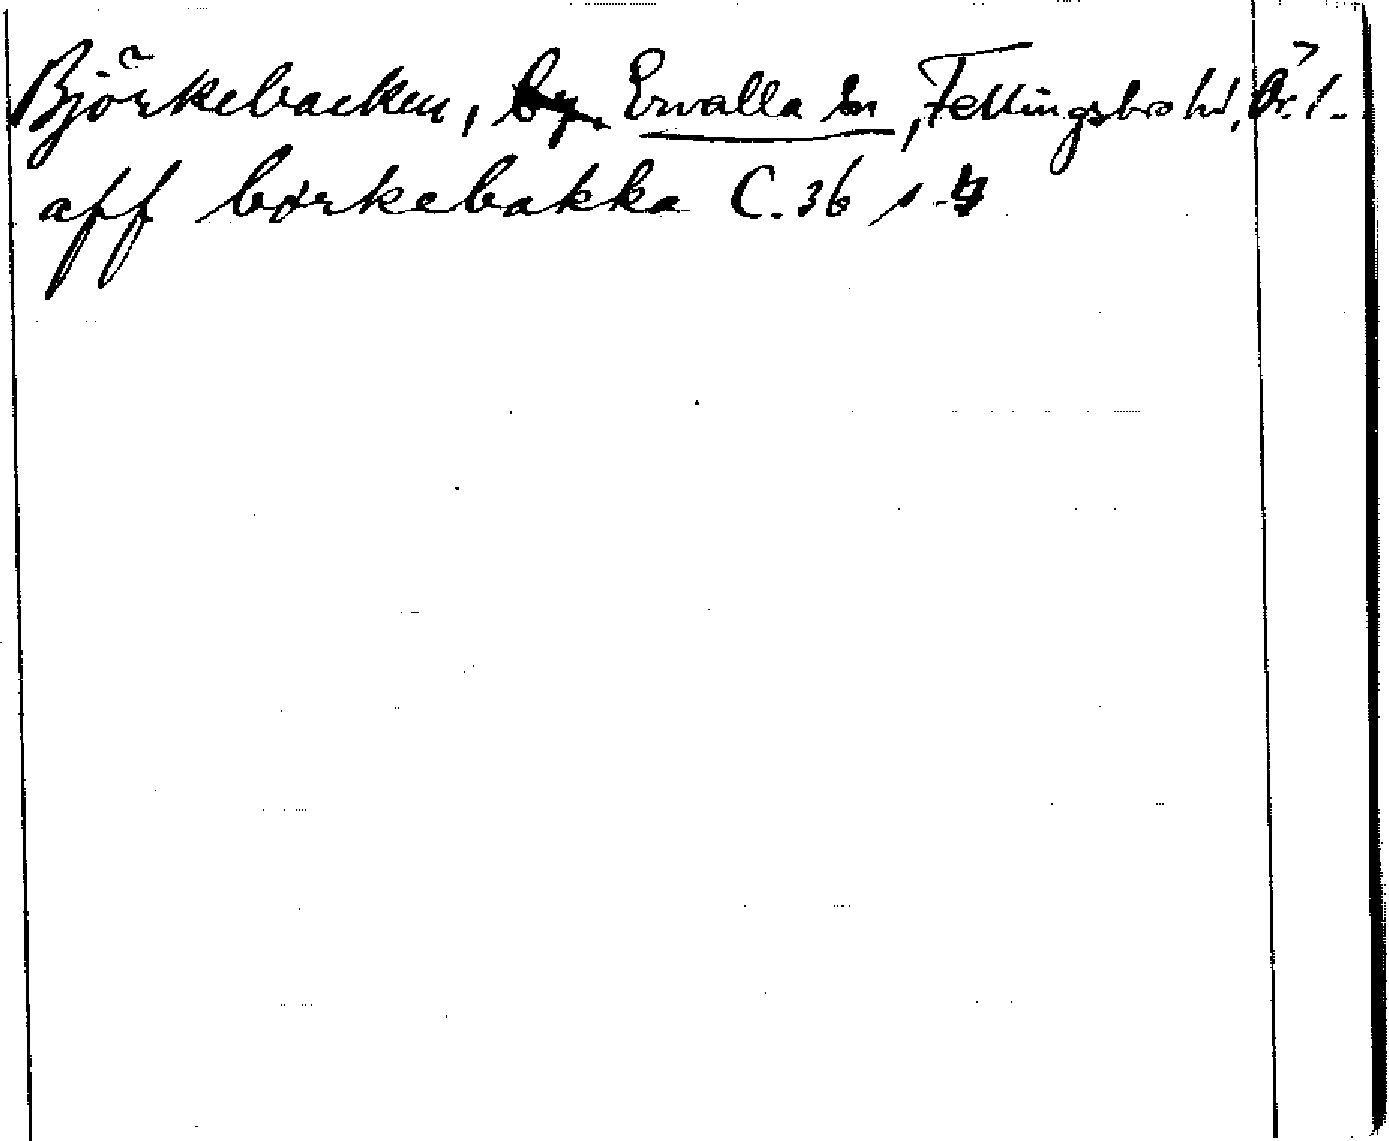 Björkebacken, by. Ervalla sn, Fellingsbro hd, Ör. l.
aff børkebakka C. 36 s. 4